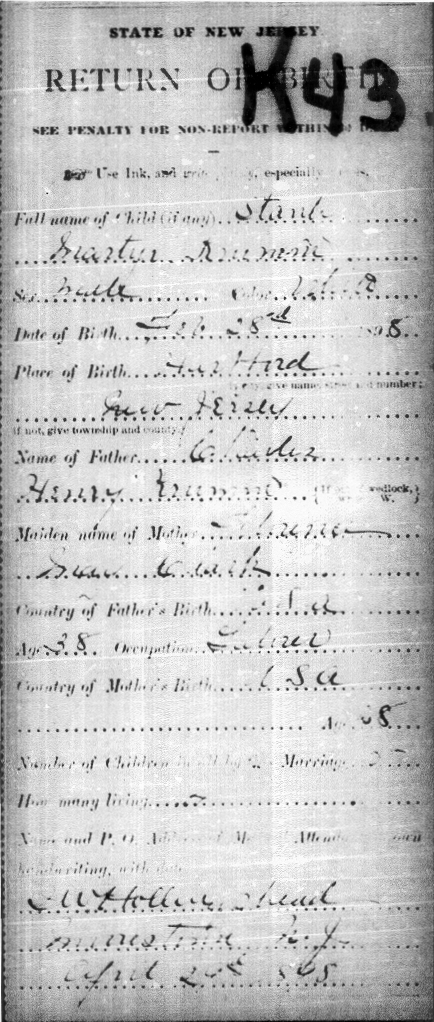 STATE OF NEW JERSEY.
K43.
RETURN OF BIRTH
SEE PENALTY FOR NON-REPORT WITHIN
Use Ink, and write plainly, especially names.
Full name of Child (if any) Stanly
Martyn Krumm
Sex Male Color White
Date of Birth Feb 28th 1898
Place of Birth Hartford
(If city, give name, street and number;
New Jersey
if not, give township and county.)
Name of Father Charles
Henry Krumm (If out of wedlock, W.)
Maiden name of Mother Florence
May Clark
Country of Father's Birth U S A
Age 38 Occupation Laborer
Country of Mother's Birth U S A
Age 38
Number of Children in all by this Marriage
How many living
Name and P. O. Address of Medical Attendant in own
handwriting, with date
S W Hollingshead
Moorestown N. J.
April 898